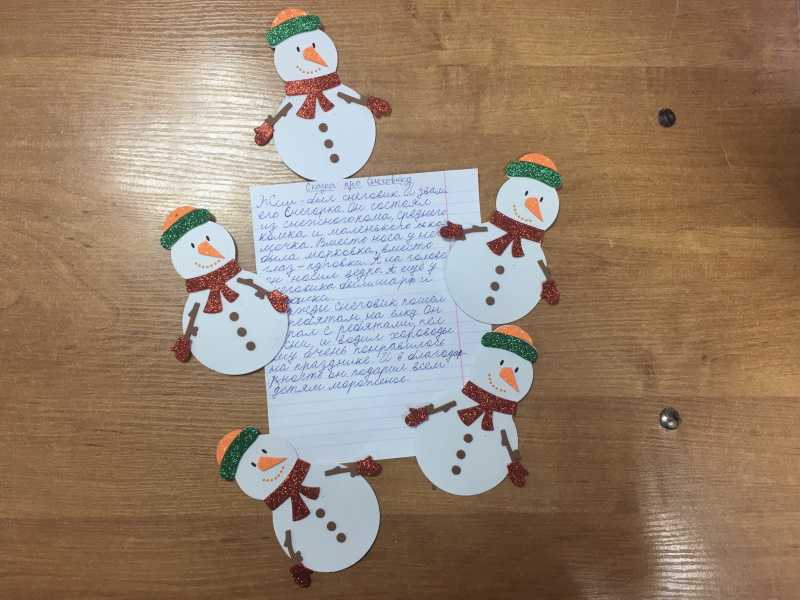 Сказка про Снеговика
Жил-был снеговик. И звали
его Снегорка. Он состоял
из снежного кома, среднего
комка и маленького
мочка. Вместо носа у него
была морковка, вместо
глаз - пуговки. А на голове
он носил ведра. А ещё у
снеговика были шарф и
снеговик пошёл
к ребятам на ёлку. Он
с ребятами, пел
и водил хороводы
очень понравилось
на празднике. И в благодар
ность он подарил всем
детям мороженое.